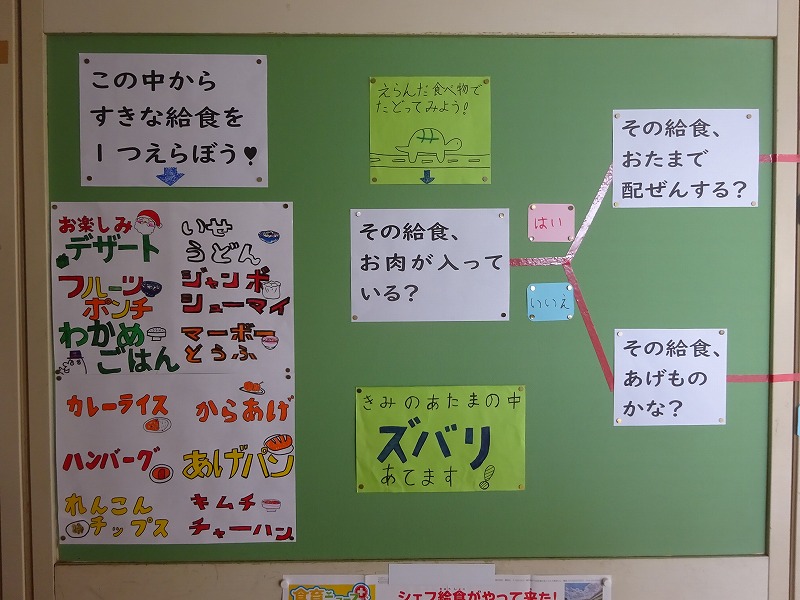 この中から
すきな給食を
1つえらぼう♥
お楽しみ
デザート
フルーツ
ポンチ
わかめ
ごはん
いせ
うどん
ジャンボ
シューマイ
マーボー
とうふ
カレーライス
からあげ
ハンバーグ
あげパン
れんこん
チップス
キムチ
チャーハン
えらんだ食べ物で
たどってみよう!
その給食、
お肉が入って
いる?
はい
いいえ
その給食、
おたまで
配ぜんする?
その給食、
あげもの
かな?
きみのあたまの中
ズバリ
あてます!
食育ニュース
シェフ給食がやって来た!